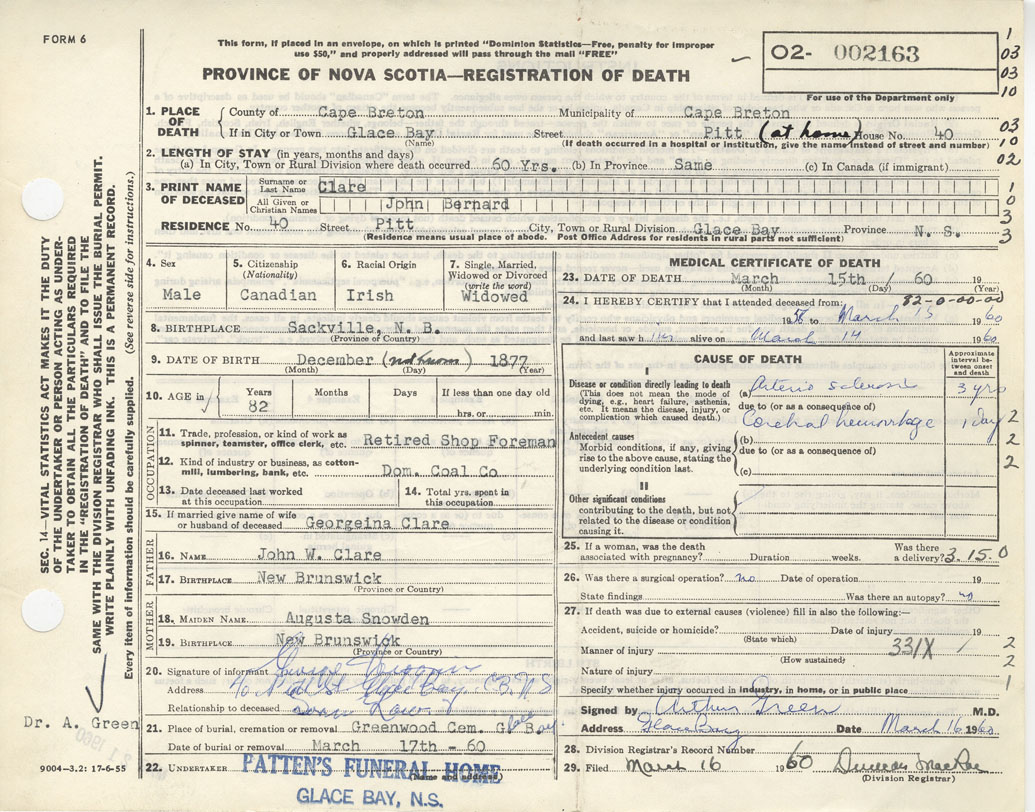 FORM 6
This form, if placed in an envelope, on which is printed "Dominion Statistics—Free, penalty for improper
use $50," and properly addressed will pass through the mail "FREE"
O2- 002163
For use of the Department only
PROVINCE OF NOVA SCOTIA—REGISTRATION OF DEATH
1
03
03
10
03
10
02
1. PLACE OF DEATH County of Cape Breton Municipality of Cape Breton
If in City or Town Glace Bay Street Pitt (at home) House No. 40
(Name) (If death occurred in a hospital or institution, give the name instead of street and number)
2. LENGTH OF STAY (in years, months and days)
(a) In City, Town or Rural Division where death occurred 60 Yrs. (b) In Province Same (c) In Canada (if immigrant)
3. PRINT NAME OF DECEASED Surname or Last Name Clare
All Given or Christian Names John Bernard
1
0
3
3
RESIDENCE No. 40 Street Pitt City, Town or Rural Division Glace Bay Province N. S.
(Residence means usual place of abode. Post Office Address for residents in rural parts not sufficient)
4. Sex Male
5. Citizenship (Nationality) Canadian
6. Racial Origin Irish
7. Single, Married, Widowed or Divorced (write the word) Widowed
8. BIRTHPLACE Sackville, N. B.
(Province or Country)
9. DATE OF BIRTH December (not known) 1877
(Month) (Day) (Year)
10. AGE in Years 82 Months Days If less than one day old hrs. or min.
OCCUPATION
11. Trade, profession, or kind of work as spinner, teamster, office clerk, etc. Retired Shop Foreman
12. Kind of industry or business, as cotton-mill, lumbering, bank, etc. Dom. Coal Co
13. Date deceased last worked at this occupation.
14. Total yrs. spent in this occupation.
15. If married give name of wife or husband of deceased Georgeina Clare
FATHER
16. NAME John W. Clare
17. BIRTHPLACE New Brunswick
(Province or Country)
MOTHER
18. MAIDEN NAME Augusta Snowden
19. BIRTHPLACE New Brunswick
(Province or Country)
20. Signature of informant George
Address Glace Bay C.B. N.S
Relationship to deceased
21. Place of burial, cremation or removal Greenwood Cem. Gl Bay
Date of burial or removal March 17th - 60
22. UNDERTAKER PATTEN'S FUNERAL HOME
(Name and address)
GLACE BAY, N.S.
MEDICAL CERTIFICATE OF DEATH
23. DATE OF DEATH March 15th / 60 19
(Month) (Day) (Year)
24. I HEREBY CERTIFY that I attended deceased from: 82-0-00-00
1958 to March 15 1960
and last saw him alive on March 14 1960
CAUSE OF DEATH
Approximate interval between onset and death
I
Disease or condition directly leading to death (a) Arterio sclerosis 3 yrs
(This does not mean the mode of dying, e.g., heart failure, asthenia, etc. It means the disease, injury, or complication which caused death.)
due to (or as a consequence of)
Cerebral hemorrhage 1 day
2
2
2
Antecedent causes (b)
Morbid conditions, if any, giving rise to the above cause, stating the underlying condition last.
due to (or as a consequence of)
(c)
II
Other significant conditions contributing to the death, but not related to the disease or condition causing it.
25. If a woman, was the death associated with pregnancy? Duration weeks. Was there a delivery? 3.15.0
26. Was there a surgical operation? no Date of operation 19
State findings Was there an autopsy? no
27. If death was due to external causes (violence) fill in also the following:—
Accident, suicide or homicide? Date of injury 19
(State which)
Manner of injury 331X
(How sustained)
2
2
1
Nature of injury
Specify whether injury occurred in industry, in home, or in public place
Signed by Arthur Green M.D.
Address Glace Bay Date March 16 1960
28. Division Registrar's Record Number
29. Filed March 16 1960 Duncan MacRae
(Division Registrar)
SEC. 14—VITAL STATISTICS ACT MAKES IT THE DUTY
OF THE UNDERTAKER OR PERSON ACTING AS UNDER-
TAKER TO OBTAIN ALL THE PARTICULARS REQUIRED
IN THE "REGISTRATION OF DEATH" AND TO FILE THE
SAME WITH THE DIVISION REGISTRAR WHO SHALL ISSUE THE BURIAL PERMIT.
WRITE PLAINLY WITH UNFADING INK. THIS IS A PERMANENT RECORD.
Every item of information should be carefully supplied. (See reverse side for instructions.)
Dr. A. Green
9004-3.2: 17-6-55